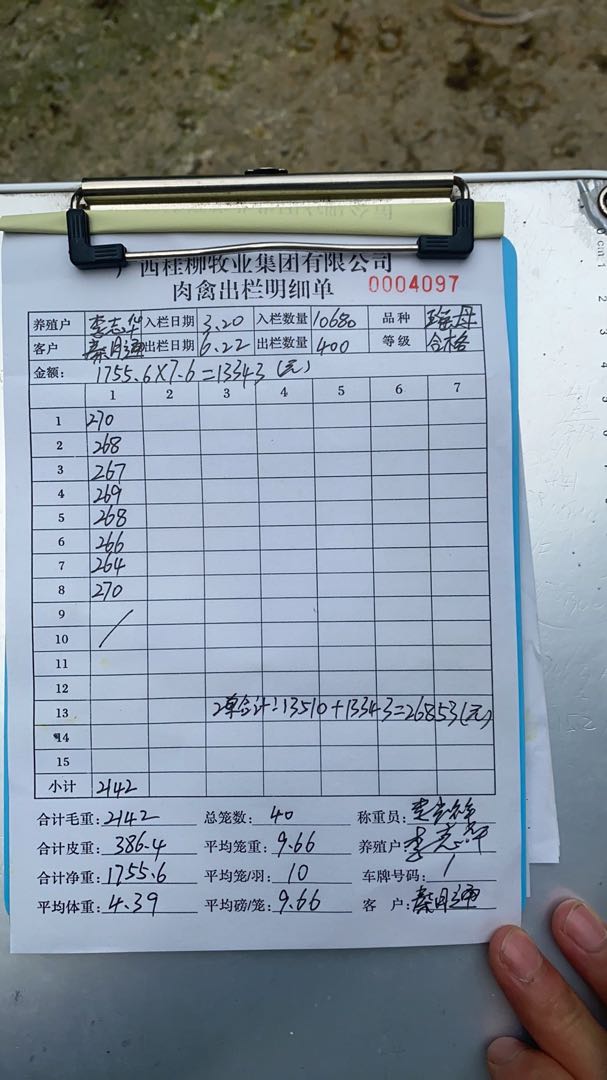 广西桂柳牧业集团有限公司
肉禽出栏明细单 0004097
养殖户 李志华 入栏日期 3.20 入栏数量 10680 品种 瑶母
客户 秦月通 出栏日期 6.22 出栏数量 400 等级 合格
金额: 1755.6×7.6=13343(元)
1 2 3 4 5 6 7
1 270
2 268
3 267
4 269
5 268
6 266
7 264
8 270
9
10
11
12
13 2单合计:13510+13343=26853(元)
14
15
小计 2142
合计毛重: 2142 总笼数: 40 称重员:
合计皮重: 386.4 平均笼重: 9.66 养殖户 李志华
合计净重: 1755.6 平均笼/羽: 10 车牌号码: 1
平均体重: 4.39 平均磅/笼: 9.66 客 户: 秦月通